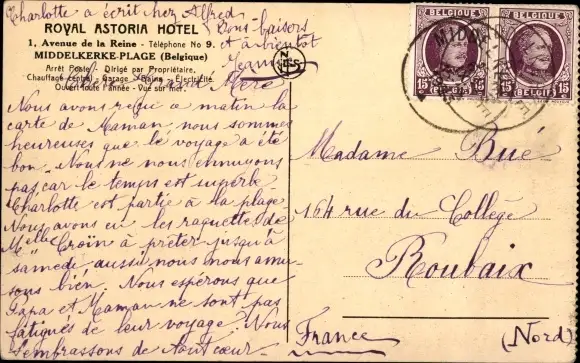 Charlotte a écrit chez Alfred
Bons baisers
et à bientôt
Jean
ROYAL ASTORIA HOTEL
1, Avenue de la Reine - Téléphone No 9.
MIDDELKERKE-PLAGE (Belgique)
Arrêt Poste - Dirigé par Propriétaire.
Chauffage central - Garage - Bains - Électricité
Ouvert toute l'année - Vue sur mer.
Grand Mère
Nous avons reçu ce matin la
carte de Maman nous sommes
heureuses que le voyage a été
bon. Nous ne nous ennuyons
pas car le temps est superbe
Charlotte est partie à la plage
Nous avons eu les raquettes de
Melle Croin à prêter jusqu'à
samedi aussi nous nous amu-
sons bien. Nous espérons que
Papa et Maman ne sont pas
fatigués de leur voyage. Nous
t'embrassons de tout cœur
BELGIQUE
BELGIE
15
15
BELGIQUE
BELGIE
15
15
Madame Bué
164 rue du Collège
Roubaix
France
(Nord)